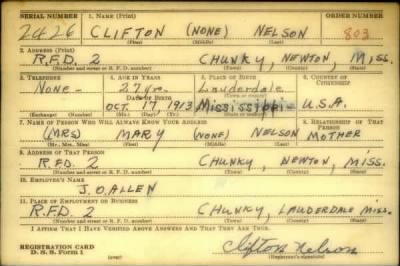 SERIAL NUMBER 1. NAME (Print) ORDER NUMBER
2426 CLIFTON (NONE) NELSON 803
(First) (Middle) (Last)
2. ADDRESS (Print)
R.F.D. 2 CHUNKY, NEWTON, MISS.
(Number and street or R. F. D. number) (Town) (County) (State)
3. TELEPHONE 4. AGE IN YEARS 5. PLACE OF BIRTH 6. COUNTRY OF CITIZENSHIP
None - 27 yrs. Lauderdale
DATE OF BIRTH (Town or county)
OCT 17, 1913 Mississippi U.S.A.
(Exchange) (Number) (Mo.) (Day) (Yr.) (State or country)
7. NAME OF PERSON WHO WILL ALWAYS KNOW YOUR ADDRESS 8. RELATIONSHIP OF THAT PERSON
(MRS) MARY (NONE) NELSON MOTHER
(Mr., Mrs., Miss) (First) (Middle) (Last)
9. ADDRESS OF THAT PERSON
R.F.D. 2 CHUNKY, NEWTON, MISS.
(Number and street or R. F. D. number) (Town) (County) (State)
10. EMPLOYER'S NAME
J. O. ALLEN
11. PLACE OF EMPLOYMENT OR BUSINESS
R.F.D. 2 CHUNKY, LAUDERDALE MISS.
(Number and street or R. F. D. number) (Town) (County) (State)
I AFFIRM THAT I HAVE VERIFIED ABOVE ANSWERS AND THAT THEY ARE TRUE.
REGISTRATION CARD
D. S. S. Form 1 Clifton Nelson
(Registrant's signature)